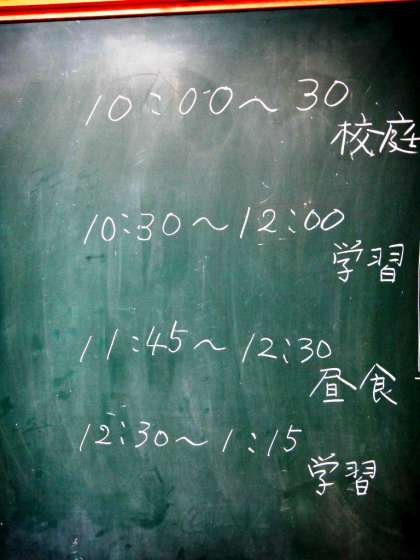 10:00～30
校庭
10:30～12:00
学習
11:45～12:30
昼食
12:30～1:15
学習